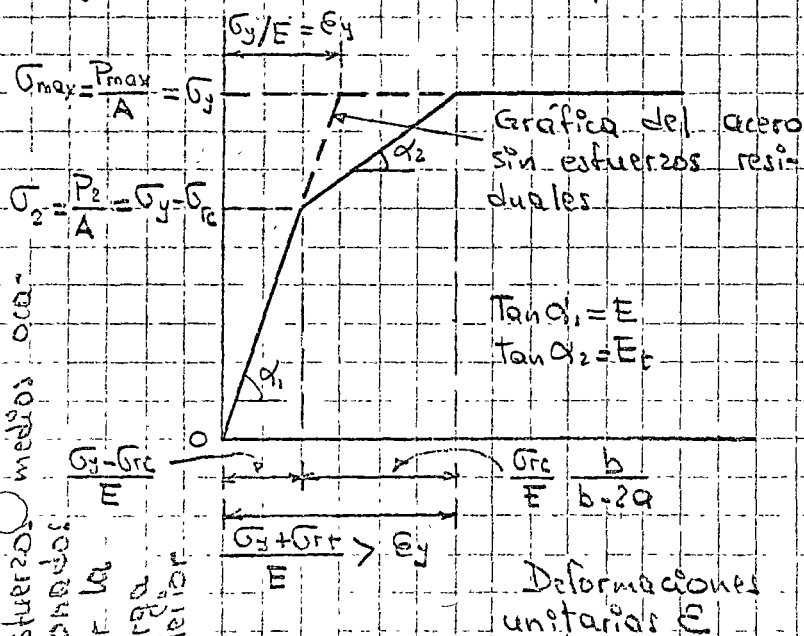 σy/E = εy
σmax = Pmax/A = σy
Gráfica del acero
sin esfuerzos resi-
duales
α2
σ2 = P2/A = σy-σrc
Tan α1 = E
Tan α2 = Et
α1
O
(σy-σrc)/E
σrc/E b/(b-2a)
(σy+σrt)/E > εy
Deformaciones
unitarias ε
medios oca-